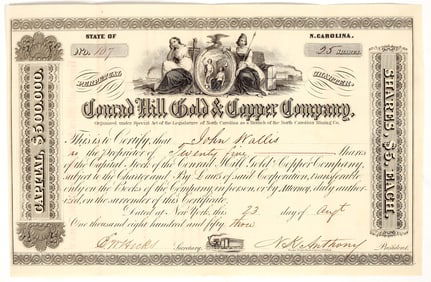 STATE OF N.CAROLINA.
No. 107 25 SHARES.
PERPETUAL CHARTER.
Conrad Hill Gold & Copper Company,
Organized under Special Act of the Legislature of North Carolina as a Branch of the North Carolina Mining Co.
CAPITAL, $500,000.
SHARES $5, EACH.
This is to Certify, that John Wallis
is the Proprietor of Twenty Five Shares
of the Capital Stock of the Conrad Hill Gold & Copper Company,
subject to the Charter and By Laws of said Corporation, transferable
only on the Books of the Company in person or by Attorney, duly author-
ized, on the surrender of this Certificate.
Dated at New York, this 23 day of Augt
One thousand eight hundred and fifty three
Secretary. N.K. Anthony President.